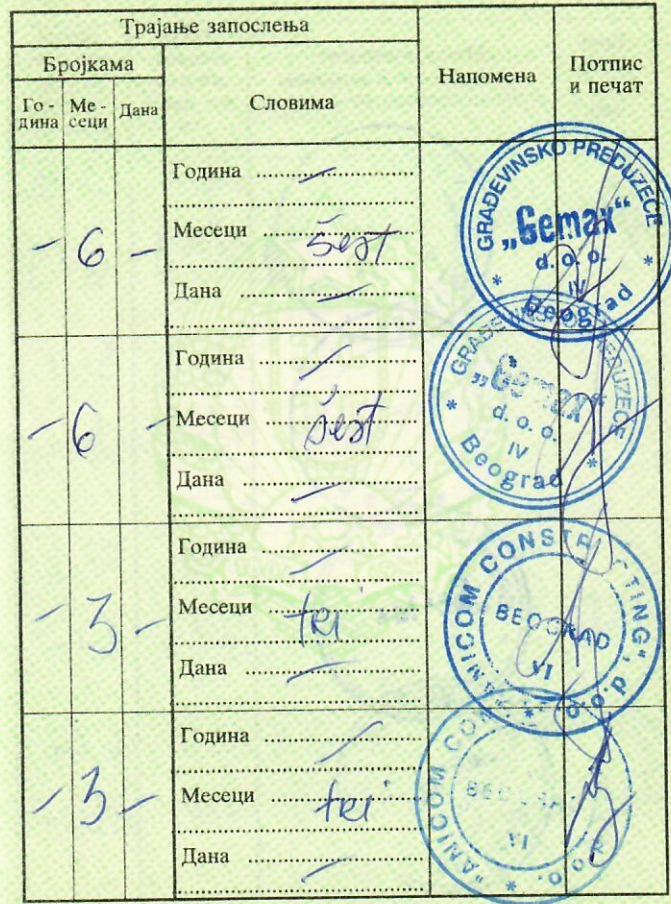 Трајање запослења
Бројкама
Словима
Напомена
Потпис
и печат
Го-
дина
Ме-
сеци
Дана
- 6 -
Година ..........
Месеци šest
Дана ..........
GRAĐEVINSKO PREDUZEĆE
„Gemax“
d. o. o.
IV
Beograd
- 6 -
Година ..........
Месеци šest
Дана ..........
GRAĐEVINSKO PREDUZEĆE
„Gemax“
d. o. o.
IV
Beograd
- 3 -
Година ..........
Месеци tri
Дана ..........
"ANICOM CONSTRUCTING", d.o.o.
BEOGRAD
VI
- 3 -
Година ..........
Месеци tri
Дана ..........
"ANICOM
BEOGRAD
VI